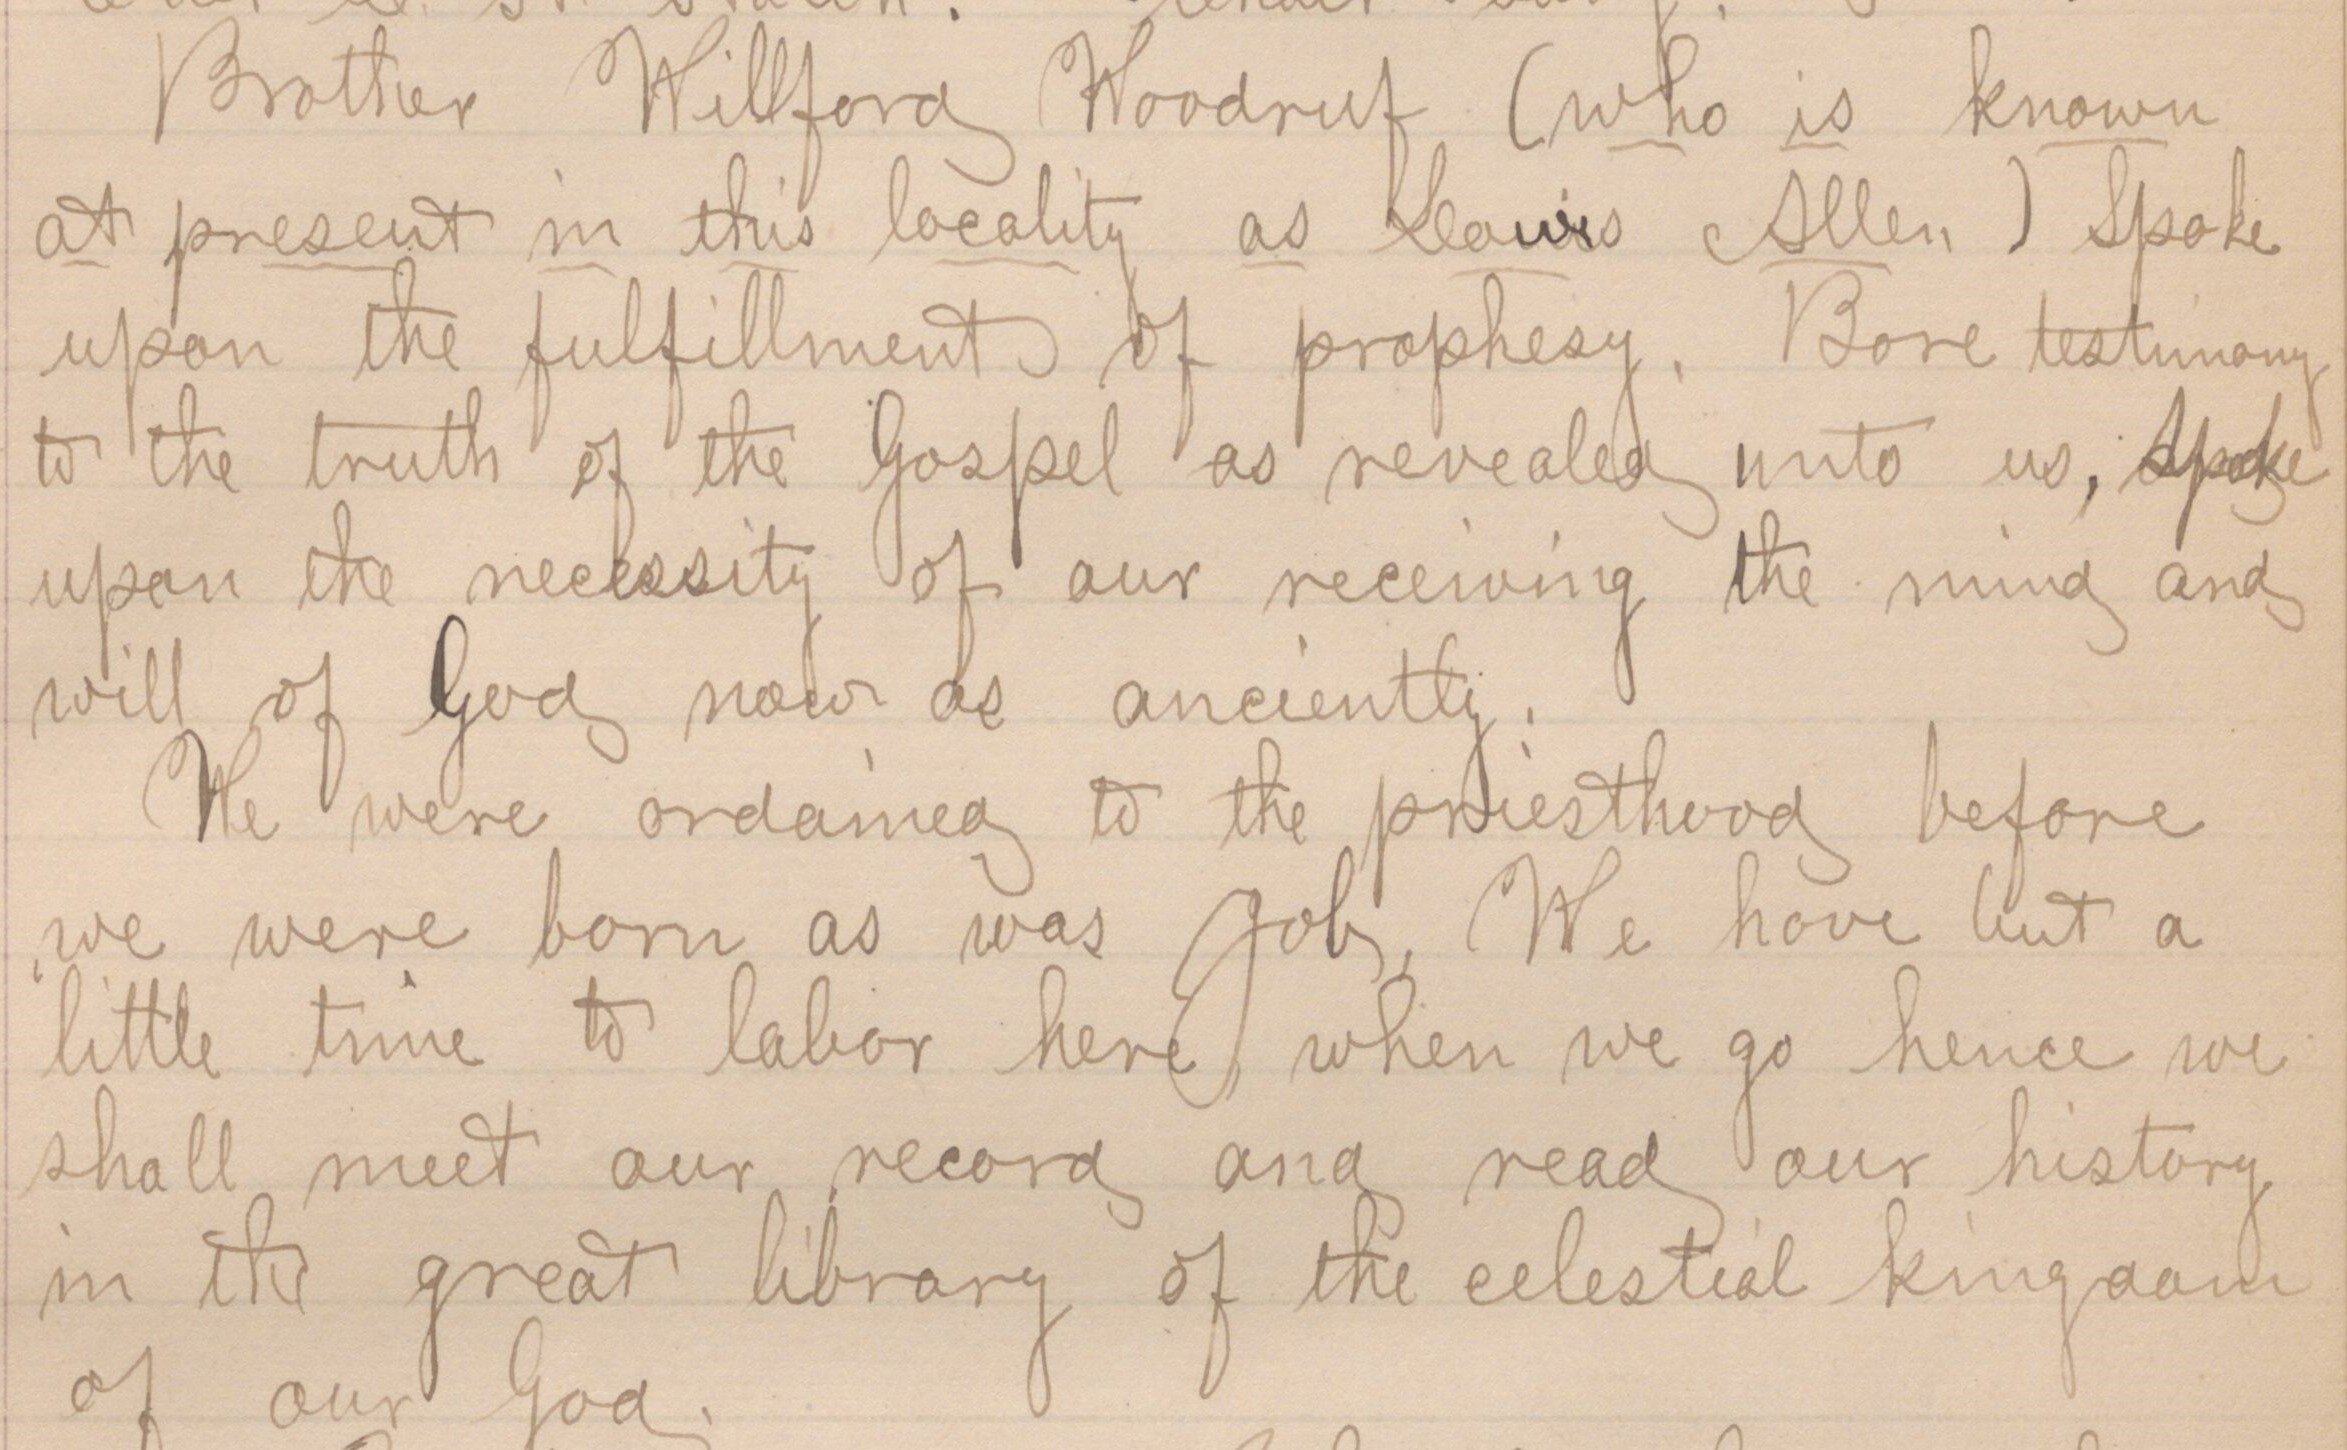 Brother Willford Woodruf (who is known
at present in this locality as Leowis Allen) Spoke
upon the fulfillment of prophesy. Bore testimony
to the truth of the Gospel as revealed unto us, Spoke
upon the necessity of our receiving the mind and
will of God now as anciently.
We were ordained to the priesthood before
we were born as was Job, We have but a
little time to labor here, when we go hence we
shall meet our record and read our history
in the great library of the celestial kingdom
of our God.